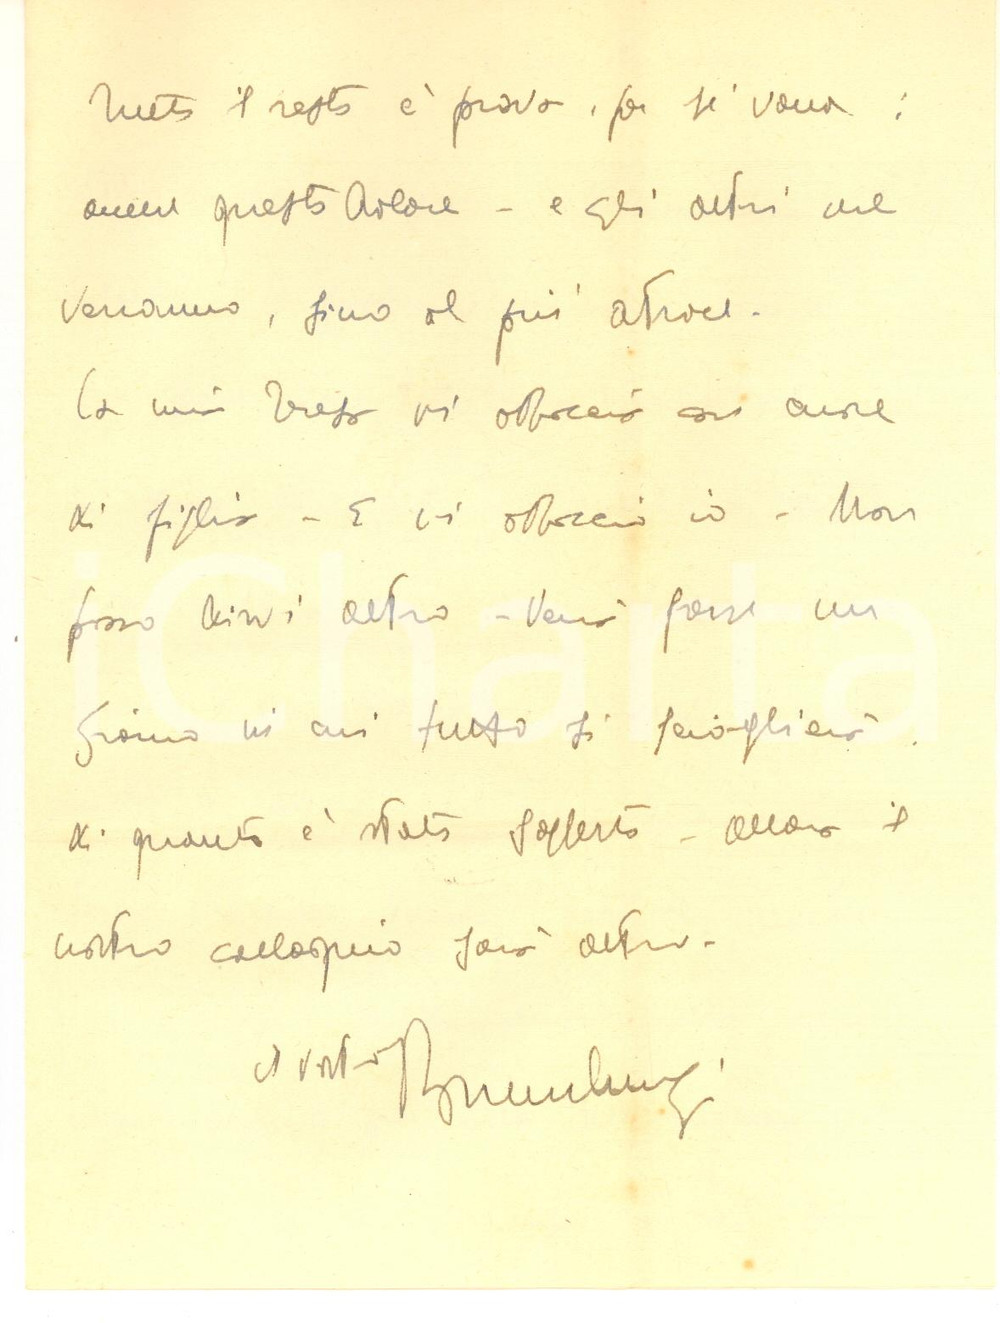 Tutto il resto è prova, poi si vedrà:
anche questo dolore - e gli altri che
verranno, fino al più atroce.
La mia Teresa vi abbraccia con cuore
di figlia - E vi abbraccio io - Non
posso dirvi altro - Verrà forse un
giorno in cui tutto si scioglierà
di quanto è stato sofferto - Allora il
nostro colloquio sarà altro -
il vostro
iCharta